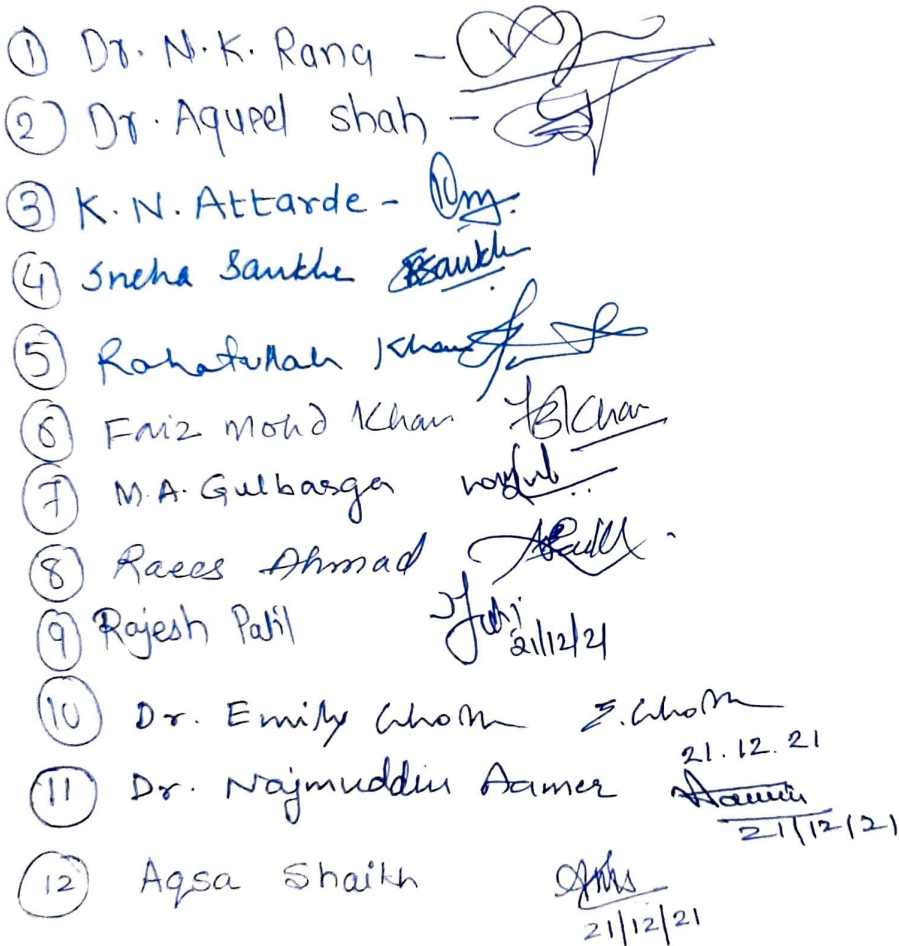 ① Dr. N.K. Rana -
② Dr. Aqueel Shah -
③ K. N. Attarde -
④ Sneha Sankhe Ssankhe
⑤ Rahatullah Khan
⑥ Faiz Mohd Khan Khan
⑦ M.A. Gulbarga
⑧ Raees Ahmad
⑨ Rajesh Patil 21/12/21
⑩ Dr. Emily
21.12.21
⑪ Dr. Najmuddin Aamer
21/12/21
⑫ Aqsa Shaikh
21/12/21